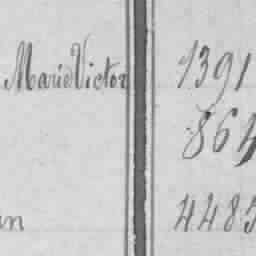 Marie Victor 1391
864
an 4485